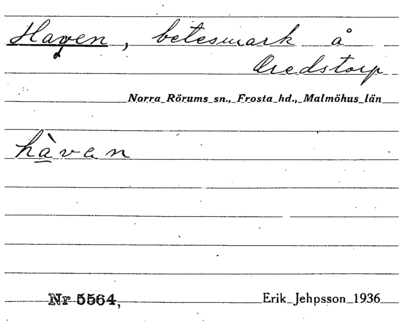 Haven, betesmark å
Aredstorp
Norra Rörums sn., Frosta hd., Malmöhus län
hàvan
Nr 5564, Erik Jehpsson 1936